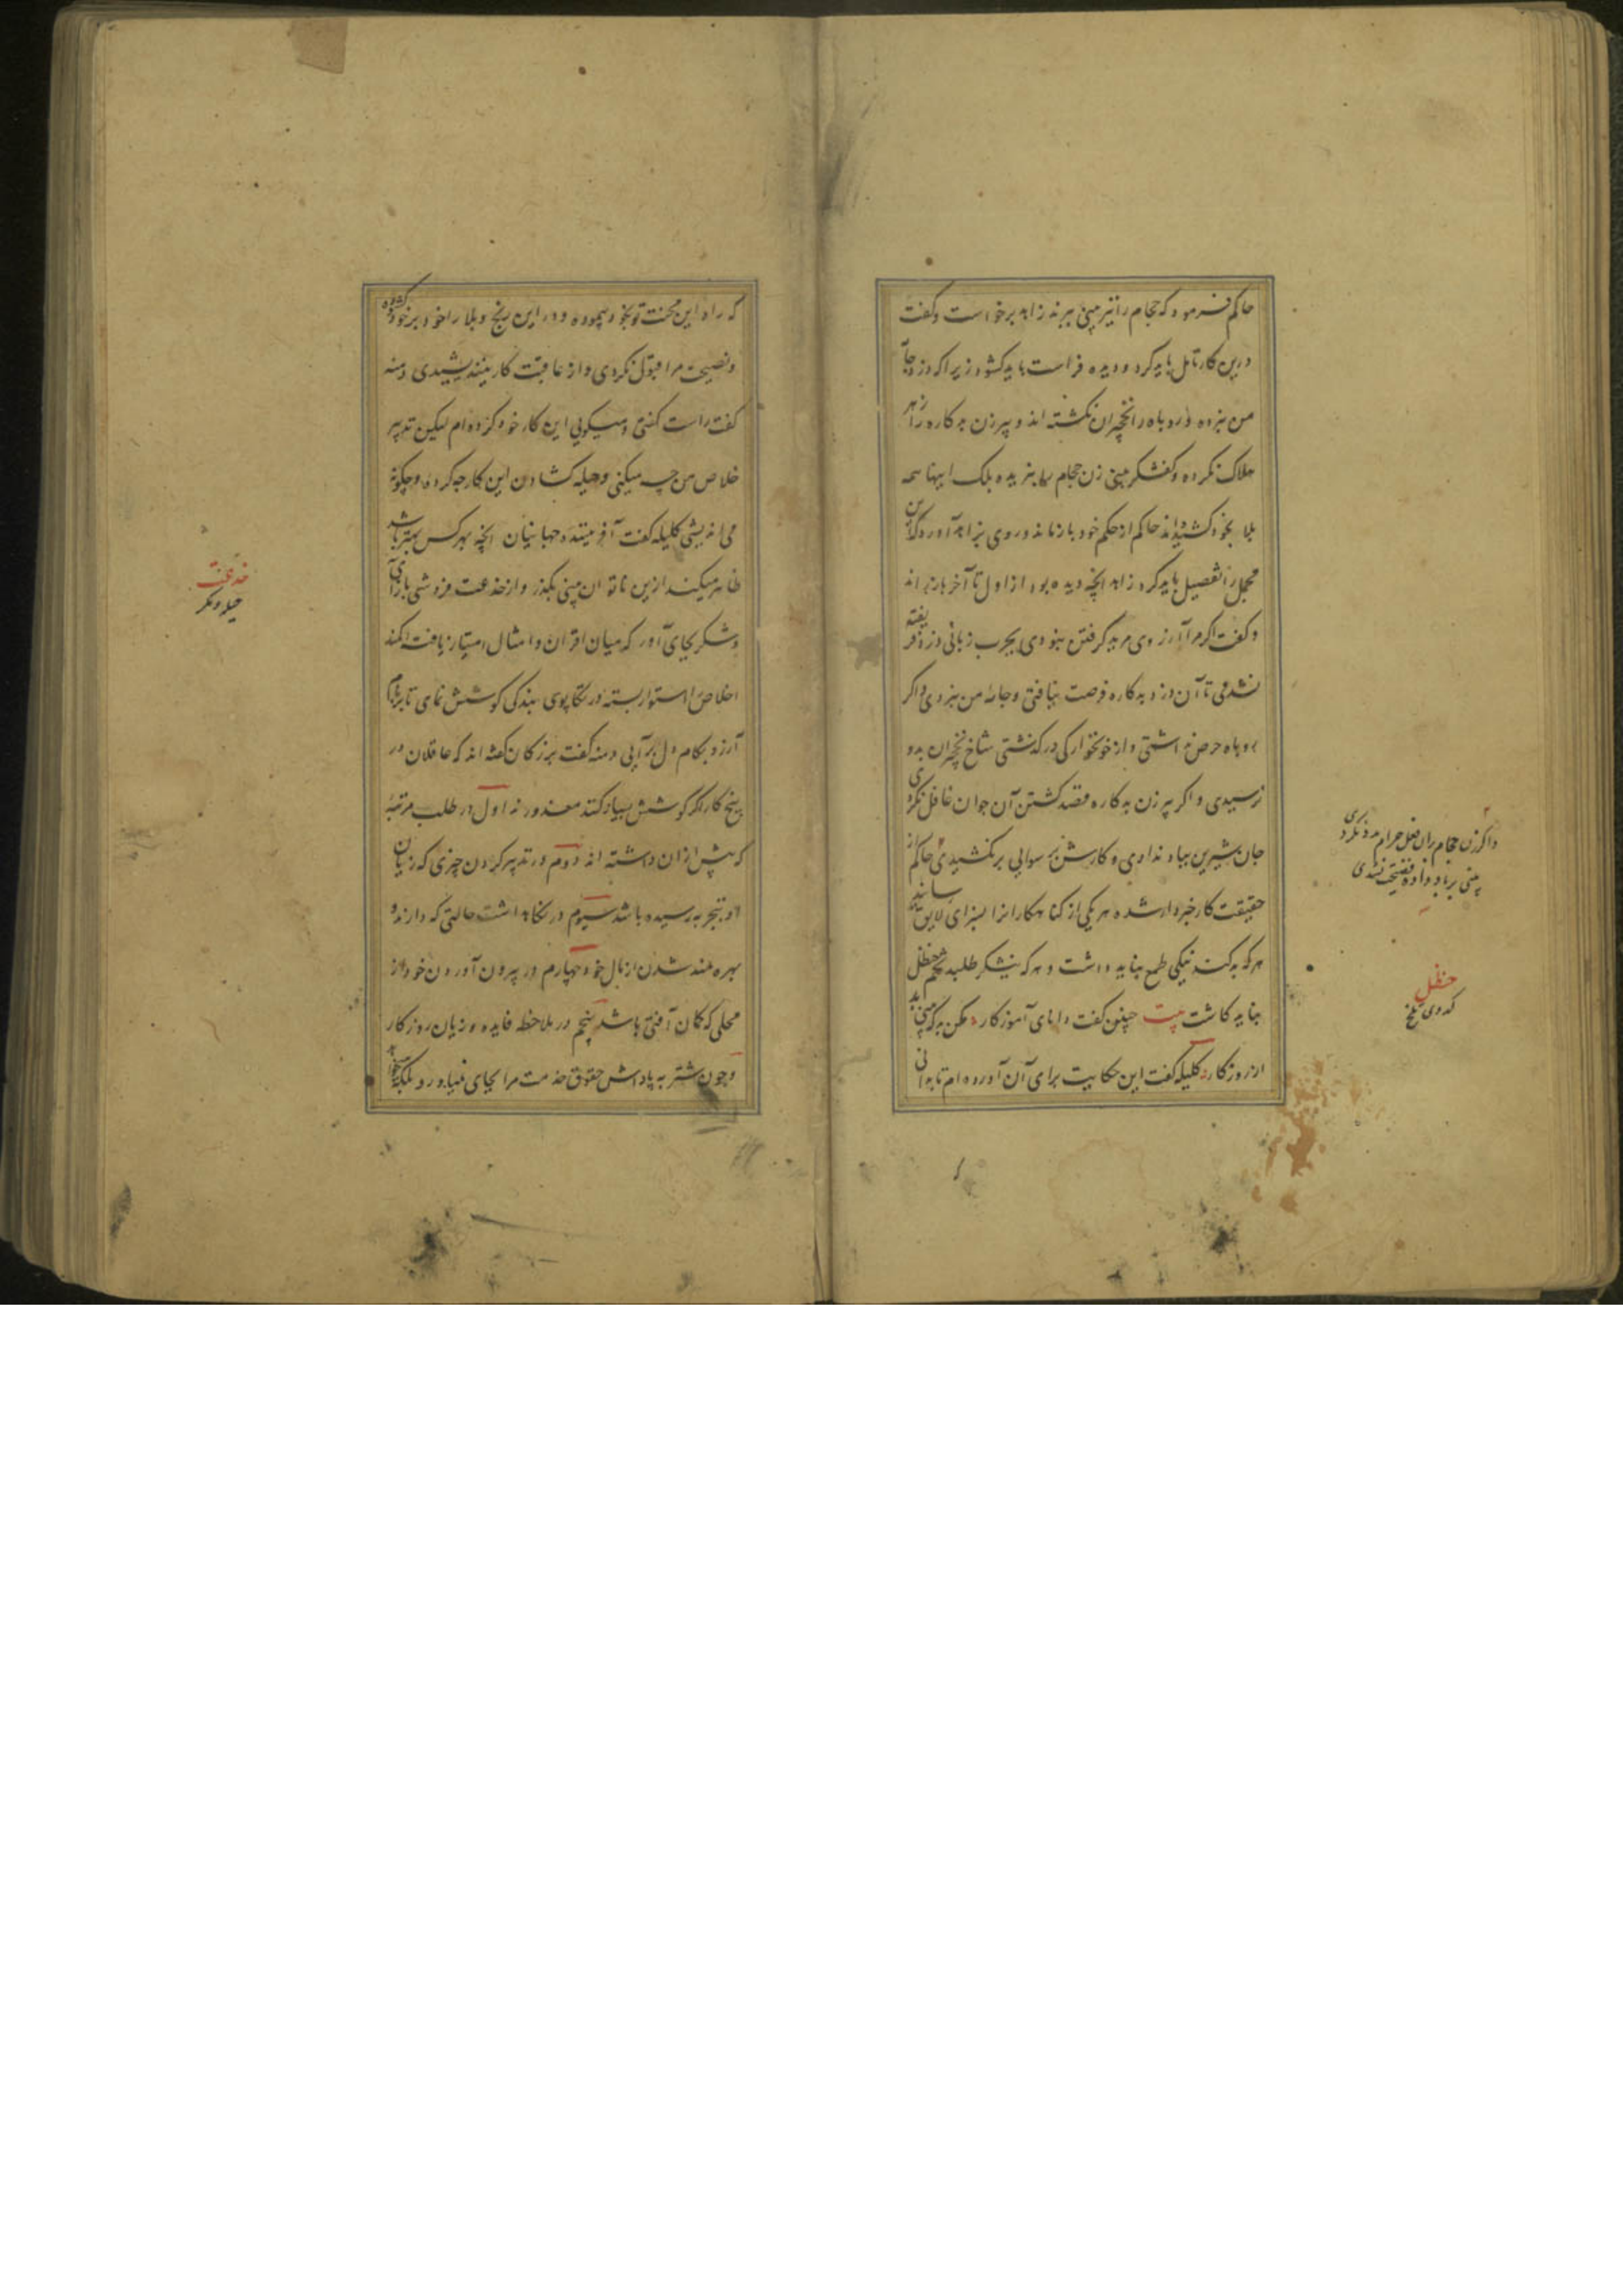 حاکم فرمود که حجام را نیز بینی ببرند زاهد برخواست و گفت
درین کار تامل باید کرد و دیده فراست باید کشود زیرا که دزد جامهٔ
من نبرده و روباه را نخچیران نکشته اند و پیرزن بدکاره را زهر
هلاک نکرده و کفشگر بینی زن حجام را نبریده بلک اینها همه
بلا بخود کشیده‌اند حاکم از حکم خود باز ماند و روی بزاهد آورد که این
مجمل را تفصیل باید کرد زاهد انچه دیده بود از اول تا آخر باز راند
و گفت اگر مرا آرزوی مرید گرفتن نبودی بچرب زبانی دزد فریفته
نشدمی تا آن دزد بدکاره فرصت نیافتی و جامهٔ من نبردی و اگر
روباه حرص نداشتی و از خونخوارگی درگذشتی شاخ نخچیران بدو
نرسیدی و اگر پیرزن بدکاره قصد کشتن آن جوان غافل نکردی
جان شیرین بباد ندادی و کارش برسوایی برنکشیدی حاکم از
حقیقت کار خبردار شده هر یکی از گناهکارانرا بسزای لایق رسانید
هر که بد کند نیکی طمع نباید داشت و هر که نیشکر طلبد تخم حنظل
نباید کاشت بیت چنین گفت دانای آموزگار مکن بد که بینی بد
از روزگار کلیله گفت این حکایت برای آن آورده‌ام تا بدانی
و اگر زن حجام بران فعل حرام مددگاری نکردی
بینی بر باد نداده فضیحت نشدی
حنظل
کدوی تلخ
که راه این محنت تو بخود پیموده و در این رنج و بلا را خود بر خود کشوده
و نصیحت مرا قبول نکردی و از عاقبت کار نیندیشیدی دمنه
گفت راست گفتی و میگویی این کار خود کرده‌ام لیکن تدبیر
خلاص من چه میکنی و حیله کشادن این کار چه کرده و چگونه
می اندیشی کلیله گفت آفریننده جهانیان انچه بهر کس بهتر باشد
ظاهر میکند ازین ناتوان بینی بگذر و از خدعت فروشی باز آی
و شکر بجای آور که میان اقران و امثال امتیاز یافته کمند
اخلاص استوار بسته در تکاپوی بندگی کوشش نمای تا بر بام
آرزو بکام دل برآیی دمنه گفت بزرگان گفته اند که عاقلان در
پنج کار اگر کوشش بسیار کنند معذورند اول در طلب مرتبهٔ
که پیش ازان داشته اند دوم در تدبیر کردن چیزی که زیان
او بتجربه رسیده باشد سیوم در نگاهداشت حالتی که دارند و
بهره‌مند شدن از مال خود چهارم در بیرون آوردن خود از
محلی که گمان آفتی باشد پنجم در ملاحظه فایده و زیان روزگار
و چون شتربه پاداش حقوق خدمت مرا بجای نیاورد بلکه
خدعت
حیله و مکر